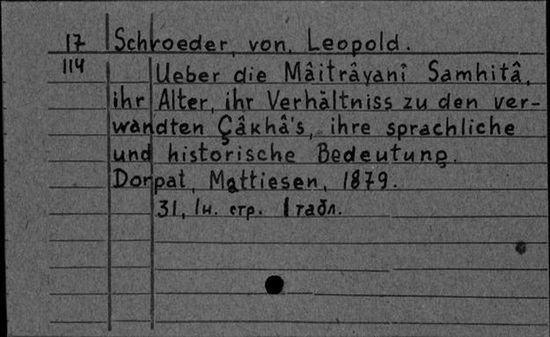 17 Schroeder, von, Leopold.
114 Ueber die Mâitrâyanî Samhitâ,
ihr Alter, ihr Verhältniss zu den ver-
wandten Çâkhâ's, ihre sprachliche
und historische Bedeutung.
Dorpat, Mattiesen, 1879.
31, 1н. стр. 1 табл.